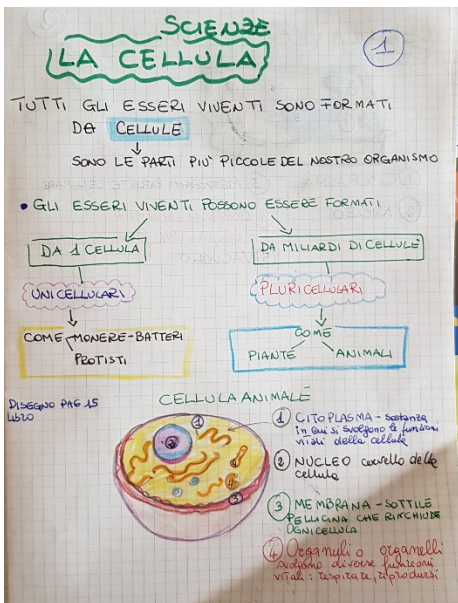 SCIENZE
LA CELLULA
1
TUTTI GLI ESSERI VIVENTI SONO FORMATI
DA CELLULE
SONO LE PARTI PIU' PICCOLE DEL NOSTRO ORGANISMO
• GLI ESSERI VIVENTI POSSONO ESSERE FORMATI
DA 1 CELLULA
DA MILIARDI DI CELLULE
UNICELLULARI
PLURICELLULARI
COME MONERE-BATTERI
PROTISTI
COME
PIANTE ANIMALI
DISEGNO PAG 15
LIBRO
CELLULA ANIMALE
1 CITOPLASMA - sostanza
in cui si svolgono le funzioni
vitali della cellula
2 NUCLEO cervello della
cellula
3 MEMBRANA - SOTTILE
PELLICINA CHE RINCHIUDE
OGNI CELLULA
4 Organuli o organelli
svolgono diverse funzioni
vitali: respirare, riprodursi
1
2
4
3